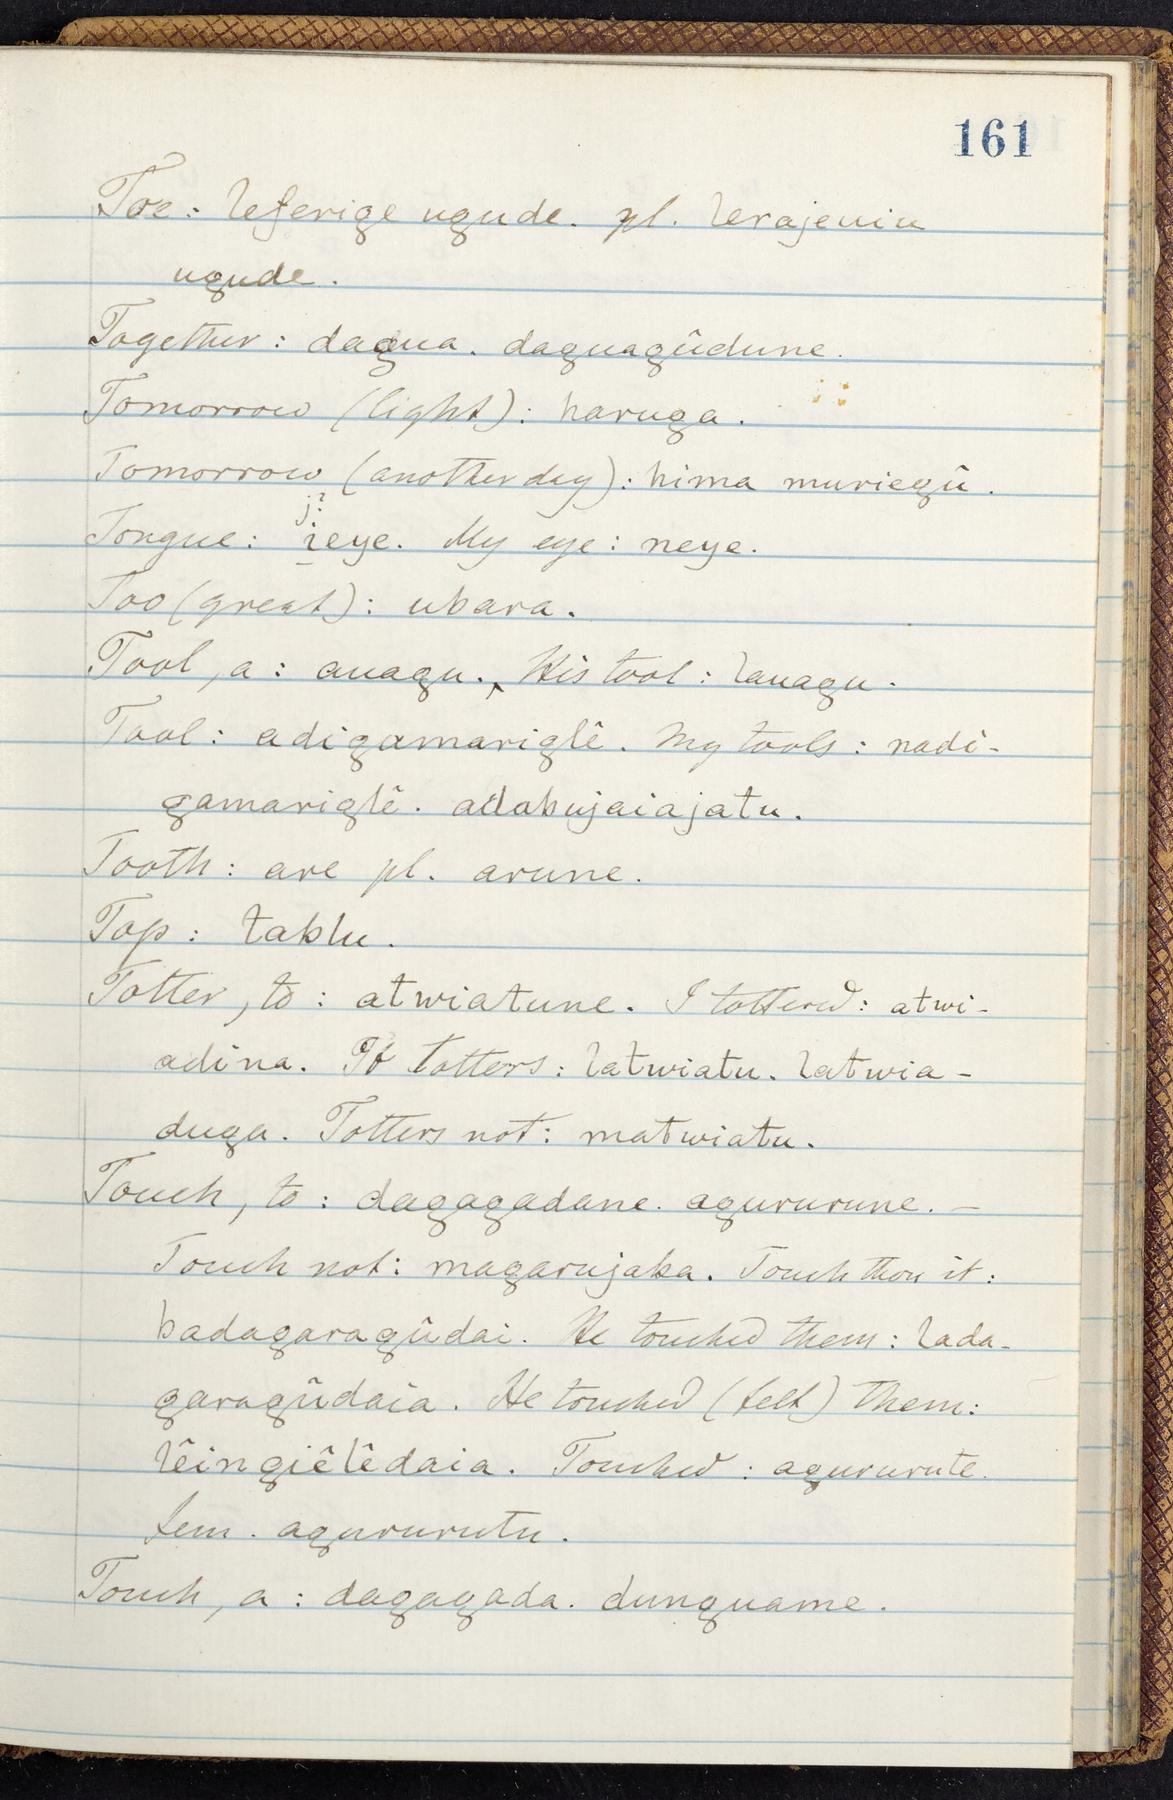 161
Toe: leferige ugude. pl. lerajeuiu
ugude.
Together: dagua. daguagûdune.
Tomorrow (light): haruga.
Tomorrow (another day): hima muriegû.
j?
Tongue: ieye. My eye: neye.
Too (great): ubara.
Tool, a: auagu. His tool: lauagu.
Tool: adigamariglê. My tools: nadi-
gamariglê. adabujaiajatu.
Tooth: are pl. arune.
Top: tablu.
Totter, to: atwiatune. I tottered: atwi-
adina. It totters: latwiatu. latwia-
duga. Totters not: matwiatu.
Touch, to: dagagadane. agururune. –
Touch not: magarujaba. Touch thou it:
badagaragûdai. He touched them: lada-
garagûdaia. He touched (felt) them:
lêingiêlêdaia. Touched: agururute.
fem. agururutu.
Touch, a: dagagada. dunguame.